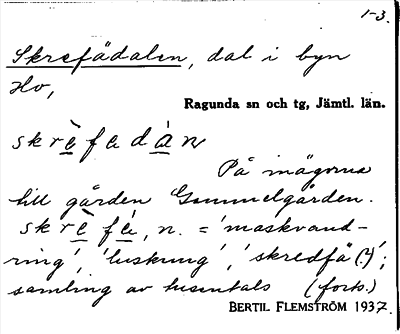 1-3.
Skrefädalen, dal i byn
Hv,
Ragunda sn och tg, Jämtl. län.
skrè̱fɐdá̱n
På mägorna
till gården Gammelgården.
skrè̱fɐ́, n. = 'maskvand-
ring', 'luskung', 'skredfä(?)';
samling av tusentals (forts.)
BERTIL FLEMSTRÖM 1937.